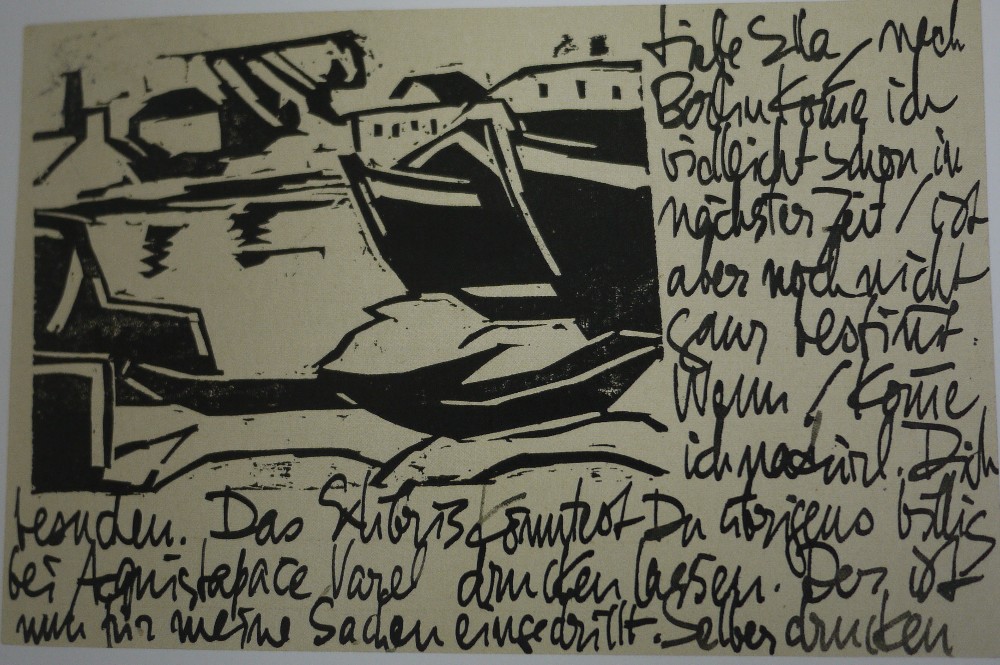 Liebe Ella / nach
Berlin kom̅e ich
vielleicht schon in
nächster Zeit / ist
aber noch nicht
ganz bestim̅t.
Wenn / kom̅e
ich natürl. Dich
besuchen. Das Exlibris kön̅test Du übrigens billig
bei Acquistapace Varel drucken lassen. Der ist
nun für meine Sachen eingedrillt. Selber drucken